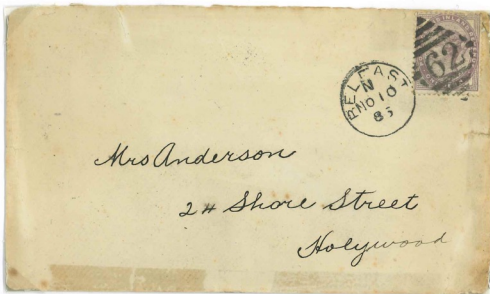 INLAND
62
BELFAST
N
NO 10
85
Mrs Anderson
24 Shore Street
Holywood